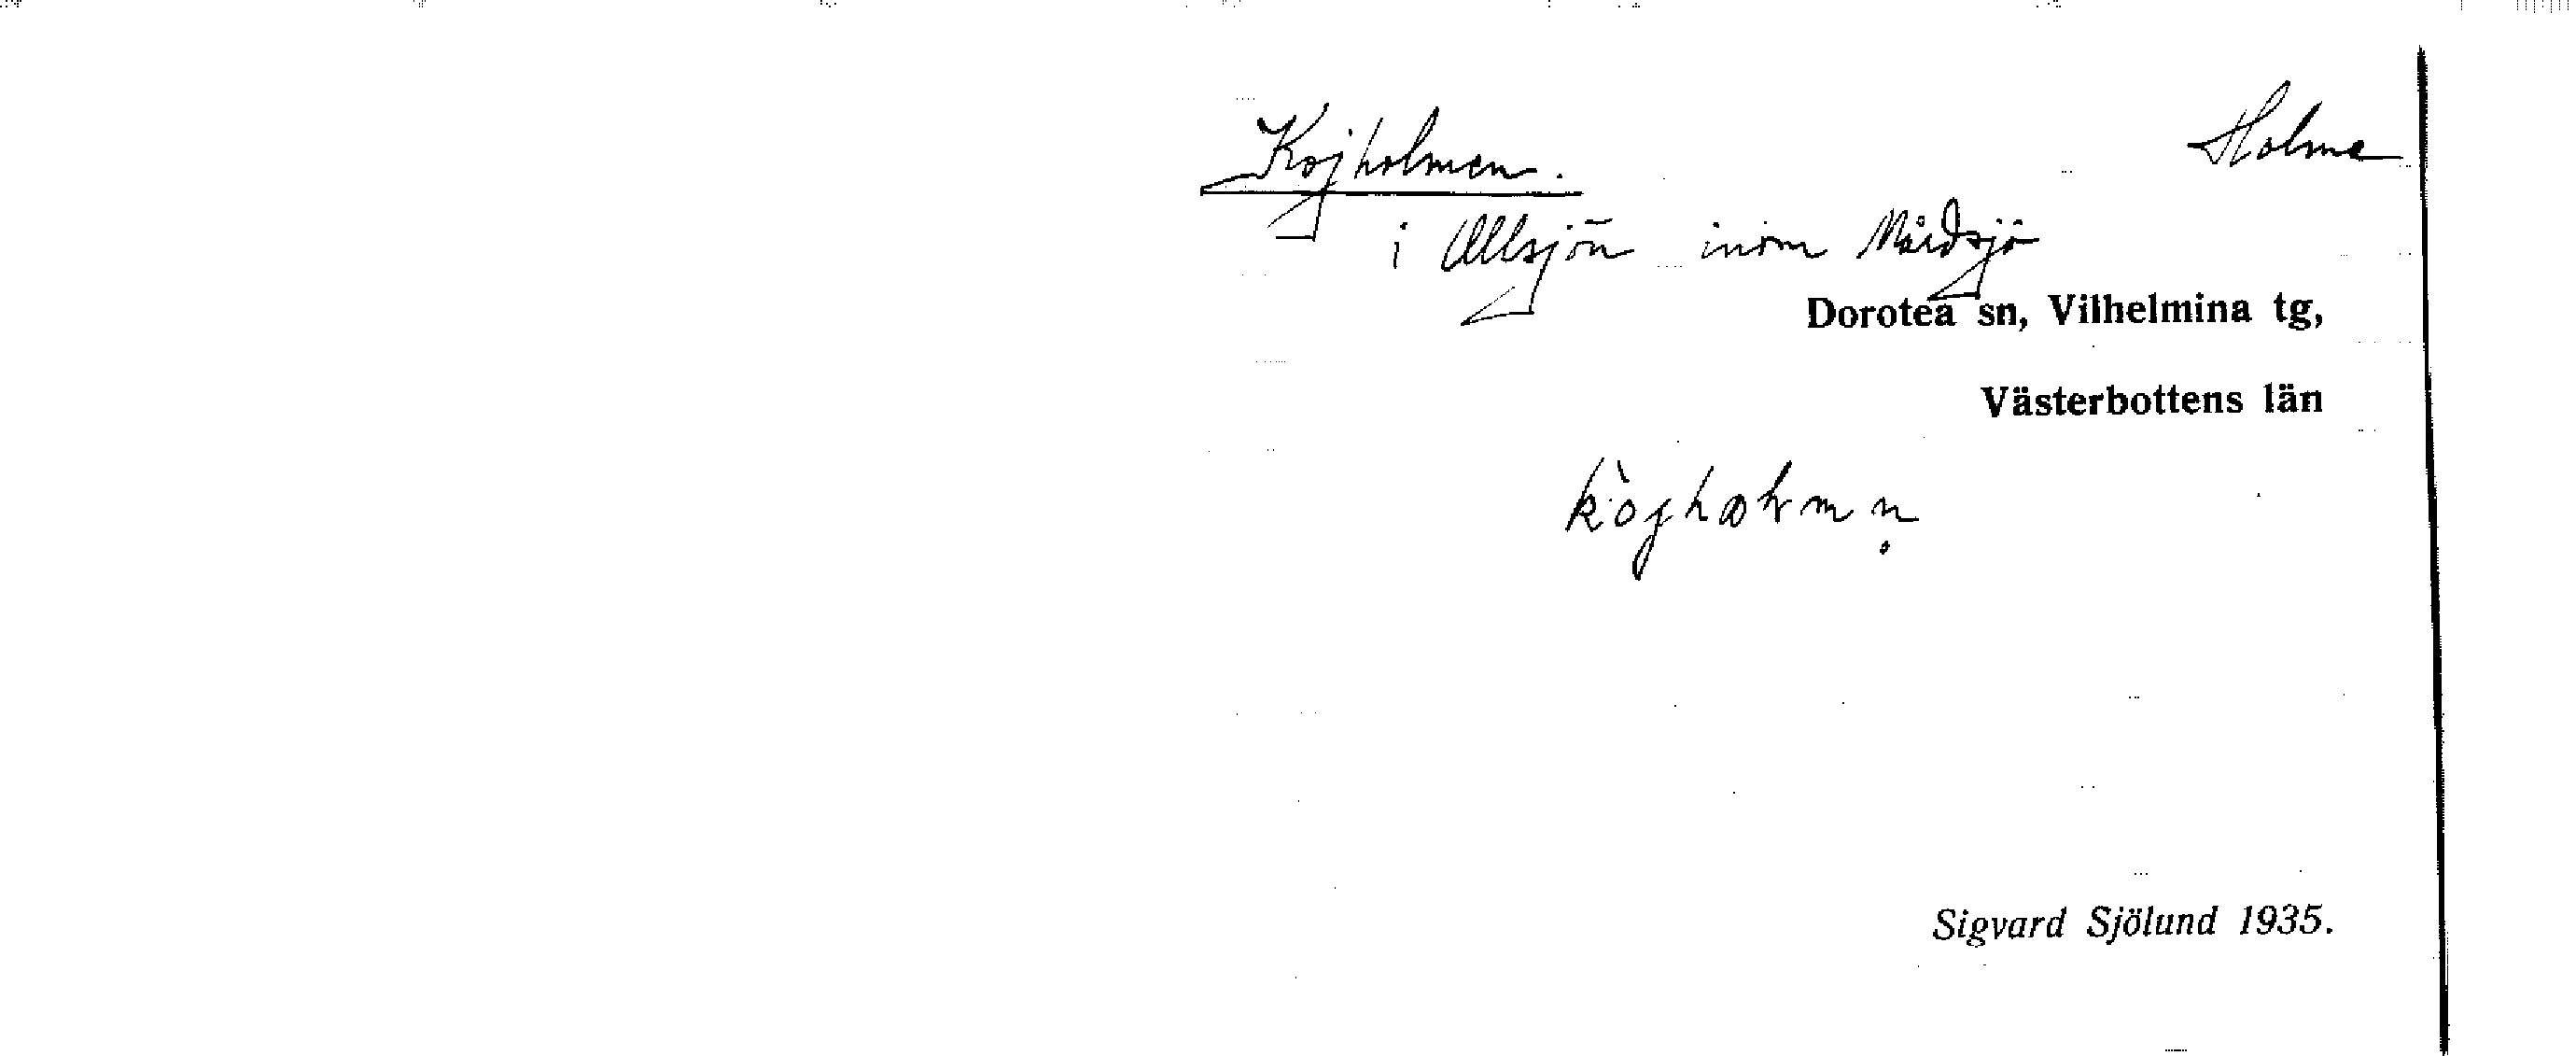 Kojholmen. Holme
i Ullsjön inom Mårdsjö
Dorotea sn, Vilhelmina tg,
Västerbottens län
Sigvard Sjölund 1935.